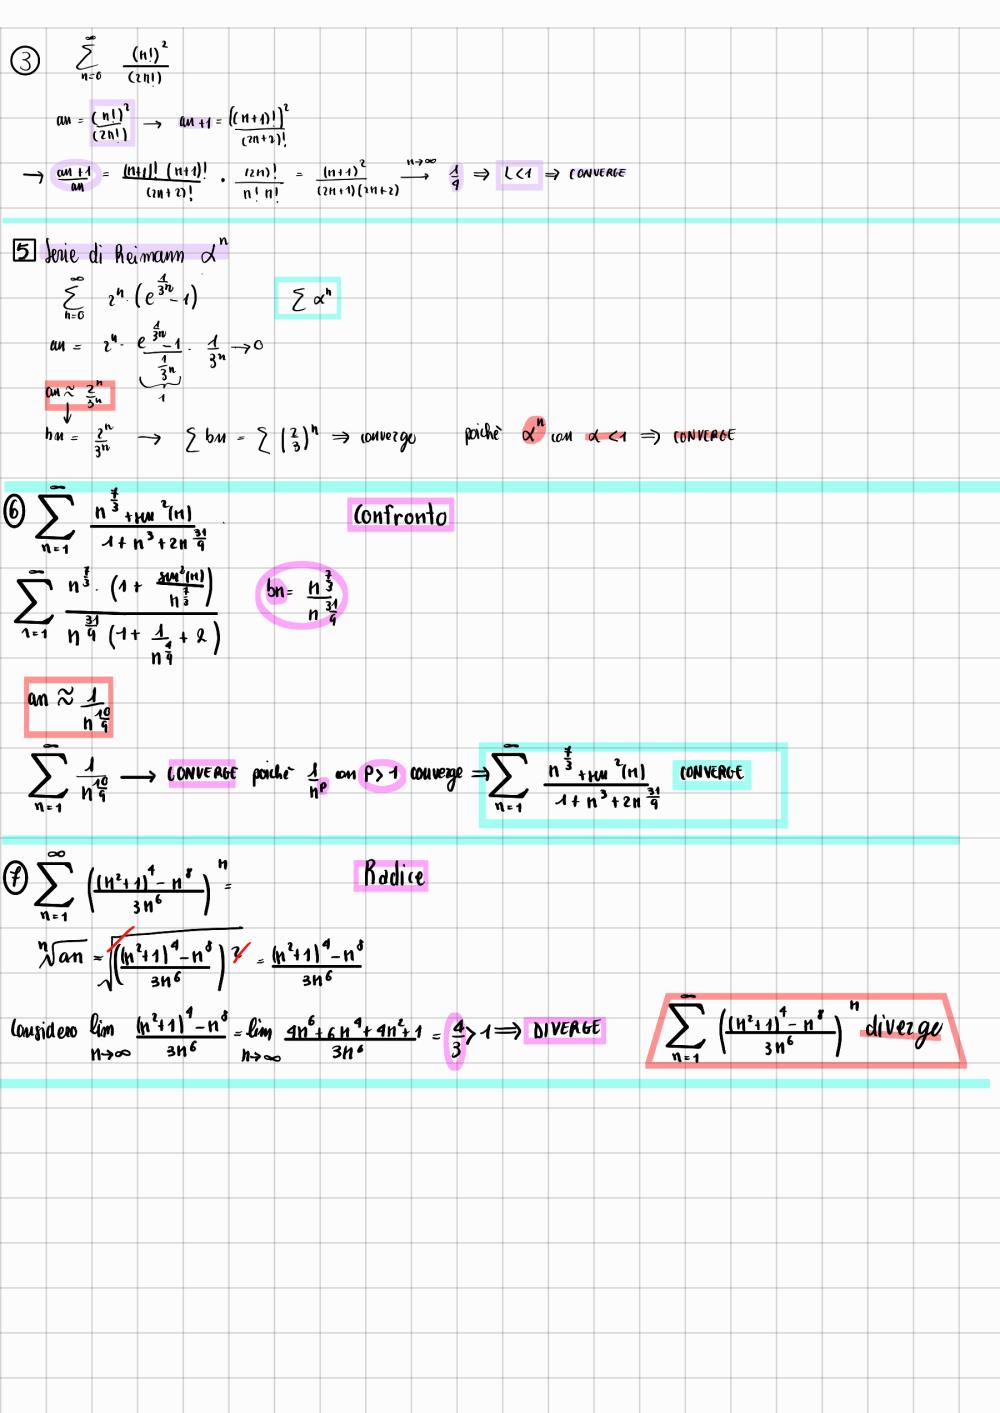 ③ ∑_{n=0}^{∞} (n!)² / (2n!)
an = (n!)² / (2n!) → an+1 = ((n+1)!)² / (2n+2)!
→ an+1 / an = (n+1)! (n+1)! / (2n+2)! · (2n)! / n! n! = (n+1)² / (2n+1)(2n+2) →^{n→∞} 1/4 ⇒ L<1 ⇒ CONVERGE
5 Serie di Reimann α^n
∑_{n=0}^{∞} 2^n · (e^{1/3^n} - 1) ∑ α^n
an = 2^n · (e^{1/3^n} - 1) / (1/3^n) · 1/3^n → 0
1
an ≈ 2^n / 3^n
↓
bn = 2^n / 3^n → ∑ bn = ∑ (2/3)^n ⇒ converge poichè α^n con α < 1 ⇒ CONVERGE
⑥ ∑_{n=1}^{∞} (n^{7/3} + sen²(n)) / (1 + n³ + 2n^{31/9}) Confronto
∑_{n=1}^{∞} n^{7/3} · (1 + sen²(n) / n^{7/3}) / n^{31/9} (1 + 1/n^{4/9} + 2) bn = n^{7/3} / n^{31/9}
an ≈ 1 / n^{10/9}
∑_{n=1}^{∞} 1 / n^{10/9} → CONVERGE poichè 1/n^p con P>1 converge ⇒ ∑_{n=1}^{∞} (n^{7/3} + sen²(n)) / (1 + n³ + 2n^{31/9}) CONVERGE
⑦ ∑_{n=1}^{∞} (((n²+1)⁴ - n⁸) / 3n⁶)^n = Radice
ⁿ√an = √(((n²+1)⁴ - n⁸) / 3n⁶) = ((n²+1)⁴ - n⁸) / 3n⁶
Considero lim_{n→∞} ((n²+1)⁴ - n⁸) / 3n⁶ = lim_{n→∞} (4n⁶ + 6n⁴ + 4n² + 1) / 3n⁶ = 4/3 > 1 ⇒ DIVERGE ∑_{n=1}^{∞} (((n²+1)⁴ - n⁸) / 3n⁶)^n diverge